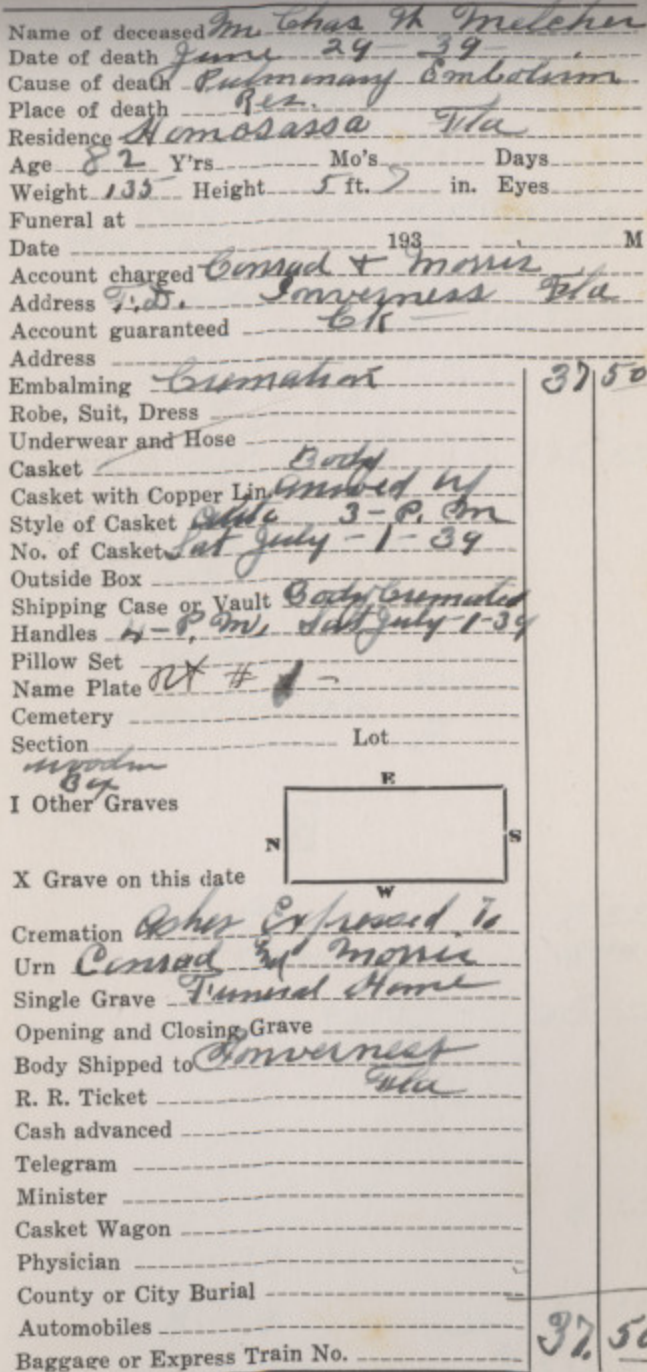 Name of deceased Mr. Chas M Melcher
Date of death June 29 - 39 -
Cause of death Pulmonary Embolism
Place of death Res.
Residence Homosassa Fla
Age 82 Y'rs Mo's Days
Weight 135 Height 5 ft. 7 in. Eyes
Funeral at
Date 193 M
Account charged Conrad & Morris
Address F.D. Inverness Fla
Account guaranteed CK -
Address
Embalming Cremation 37 50
Robe, Suit, Dress
Underwear and Hose
Casket Body
Casket with Copper Lin.
Style of Casket 3 - P. M
No. of Casket Sat July - 1 - 39
Outside Box
Shipping Case or Vault Body Cremated
Handles 4 - P, M, Sat July - 1 - 39
Pillow Set
Name Plate #
Cemetery
Section Lot
wooden
Box
E
I Other Graves
N S
X Grave on this date
W
Cremation Ashes Expressed To
Urn Conrad Morris
Single Grave Funeral Home
Opening and Closing Grave
Body Shipped to Inverness
R. R. Ticket Fla
Cash advanced
Telegram
Minister
Casket Wagon
Physician
County or City Burial
Automobiles 37. 50
Baggage or Express Train No.